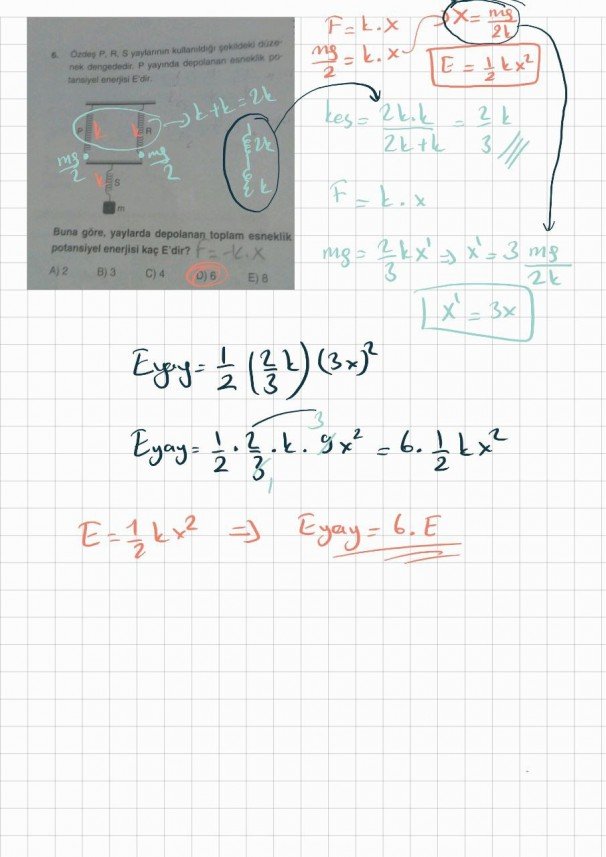 6. Özdeş P, R, S yaylarının kullanıldığı şekildeki düze-
nek dengededir. P yayında depolanan esneklik po-
tansiyel enerjisi E'dir.
k+k = 2k
P k k R
mg/2 mg/2
k S
m
2k
k
Buna göre, yaylarda depolanan toplam esneklik
potansiyel enerjisi kaç E'dir? F = -k.x
A) 2 B) 3 C) 4 D) 6 E) 8
F = k.x
mg/2 = k.x
x = mg/2k
E = 1/2 kx²
keş = 2k.k/2k+k = 2k/3
F = k.x
mg = 2/3 kx' ⇒ x' = 3 mg/2k
x' = 3x
Eyay = 1/2 (2/3 k) (3x)²
Eyay = 1/2 . 2/3 . k . 9x² = 6 . 1/2 kx²
3
1
E = 1/2 kx² ⇒ Eyay = 6.E